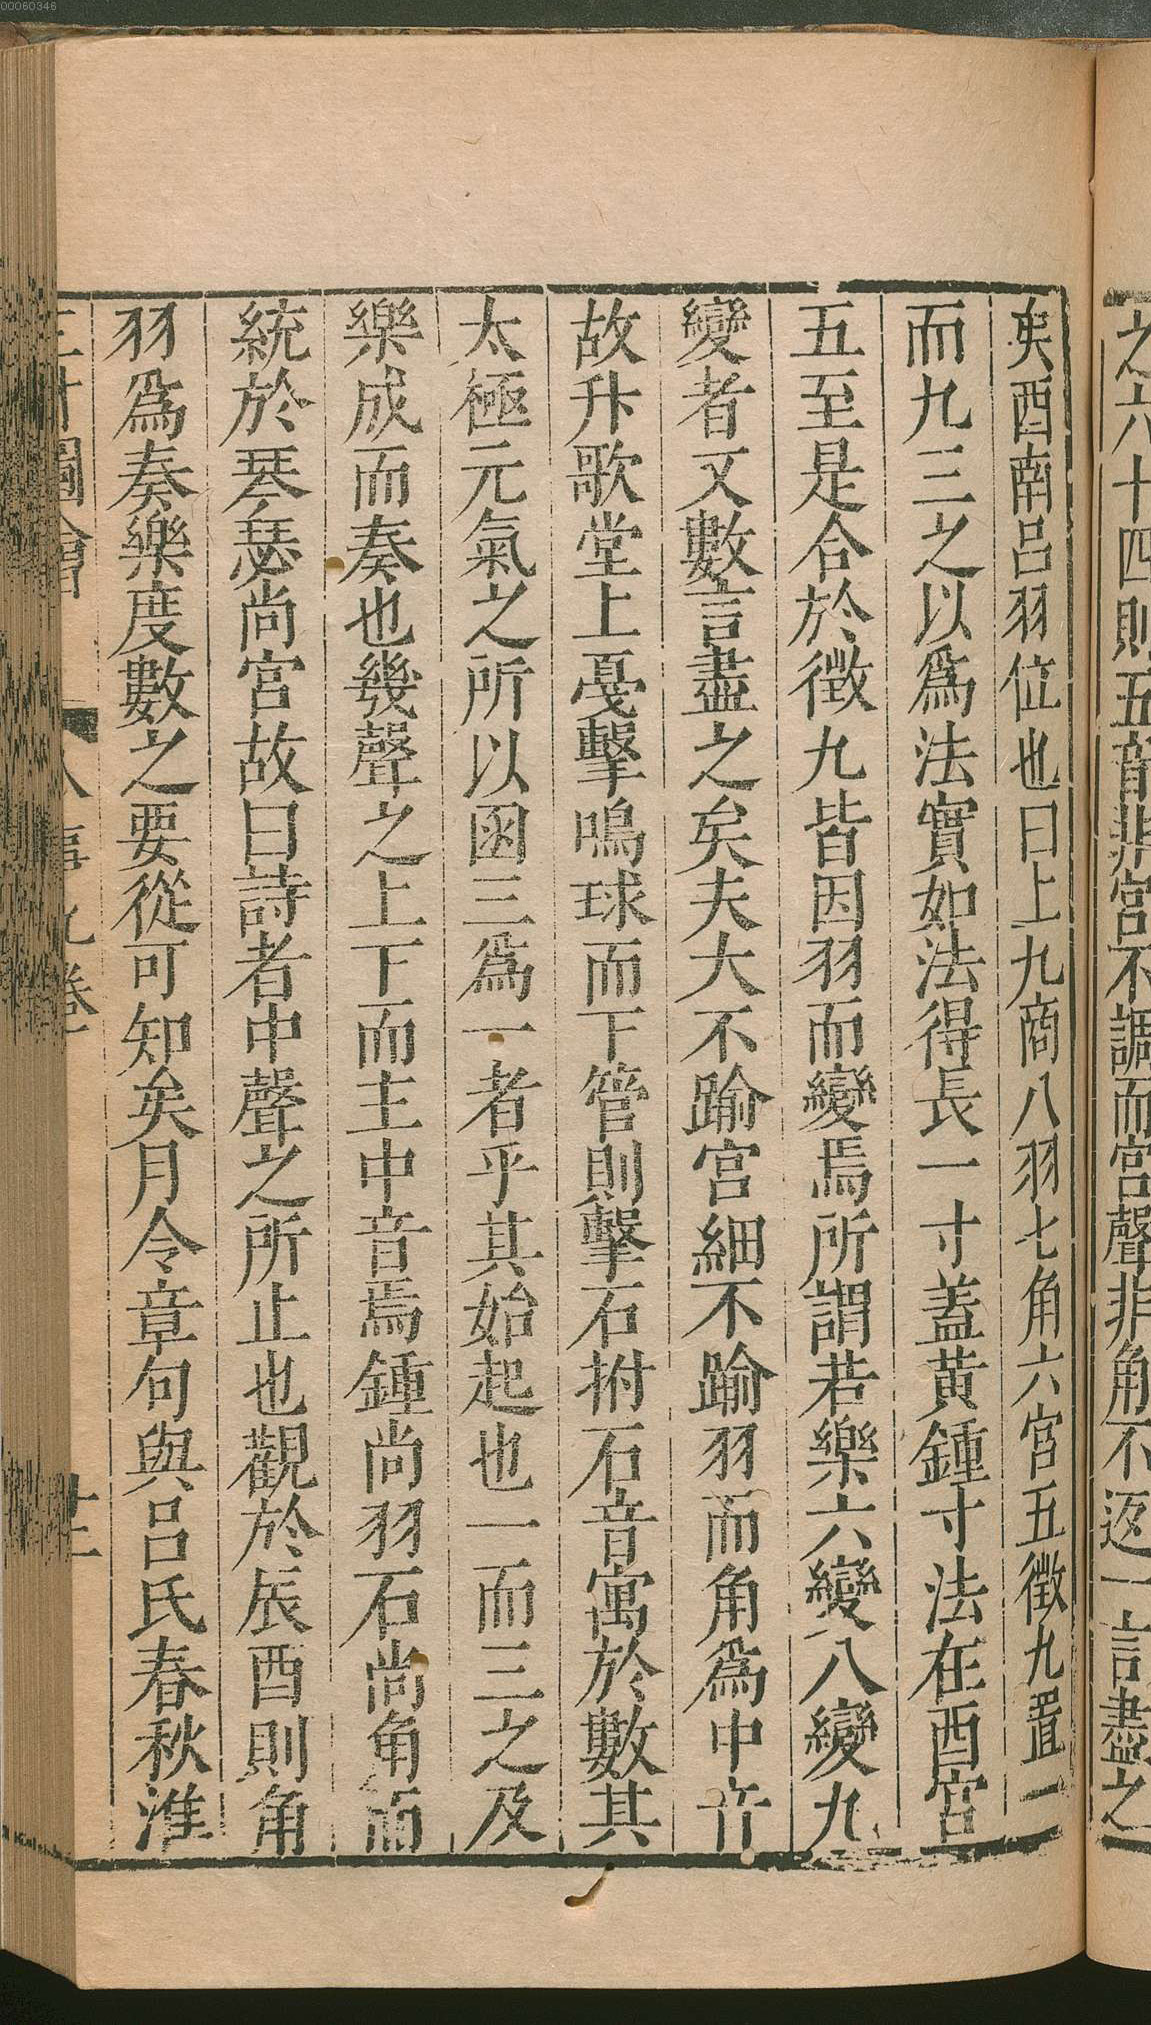 00060346
之六十四則五音非宮不調而宮聲非角不返一言盡之
矣酉南呂羽位也曰上九商八羽七角六宮五徵九置一
而九三之以爲法實如法得長一寸蓋黄鍾寸法在酉宮
五至是合於徵九皆因羽而變焉所謂若樂六變八變九
變者又數言盡之矣夫大不踰宮細不踰羽而角爲中音
故升歌堂上戞擊鳴球而下管則擊石拊石音寓於數其
太極元氣之所以函三爲一者乎其始起也一而三之及
樂成而奏也幾聲之上下而主中音焉鍾尚羽石尚角而
統於琴瑟尚宮故曰詩者中聲之所止也觀於辰酉則角
羽爲奏樂度數之要從可知矣月令章句與呂氏春秋淮
三才圖會 人事九卷 廿三